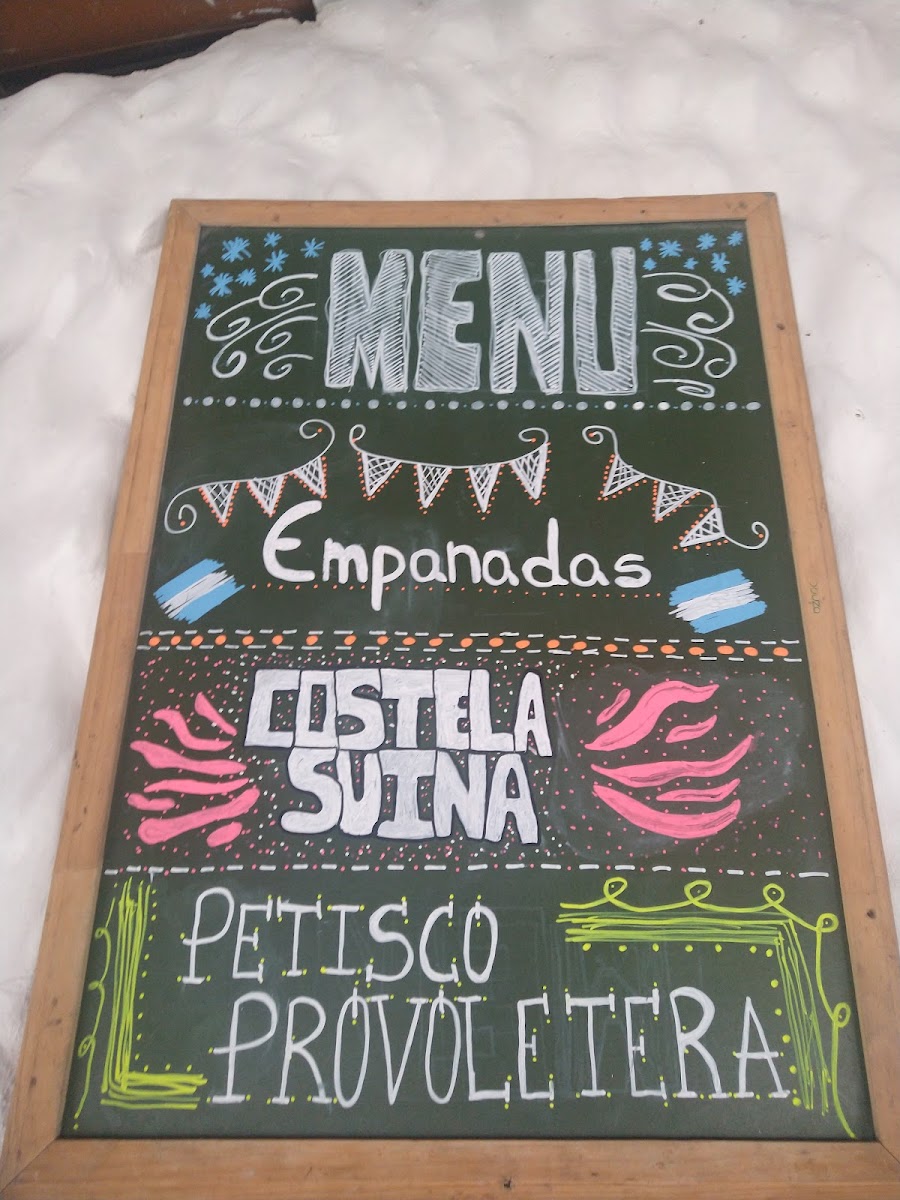 MENU
Empanadas
COSTELA
SUINA
PETISCO
PROVOLETERA